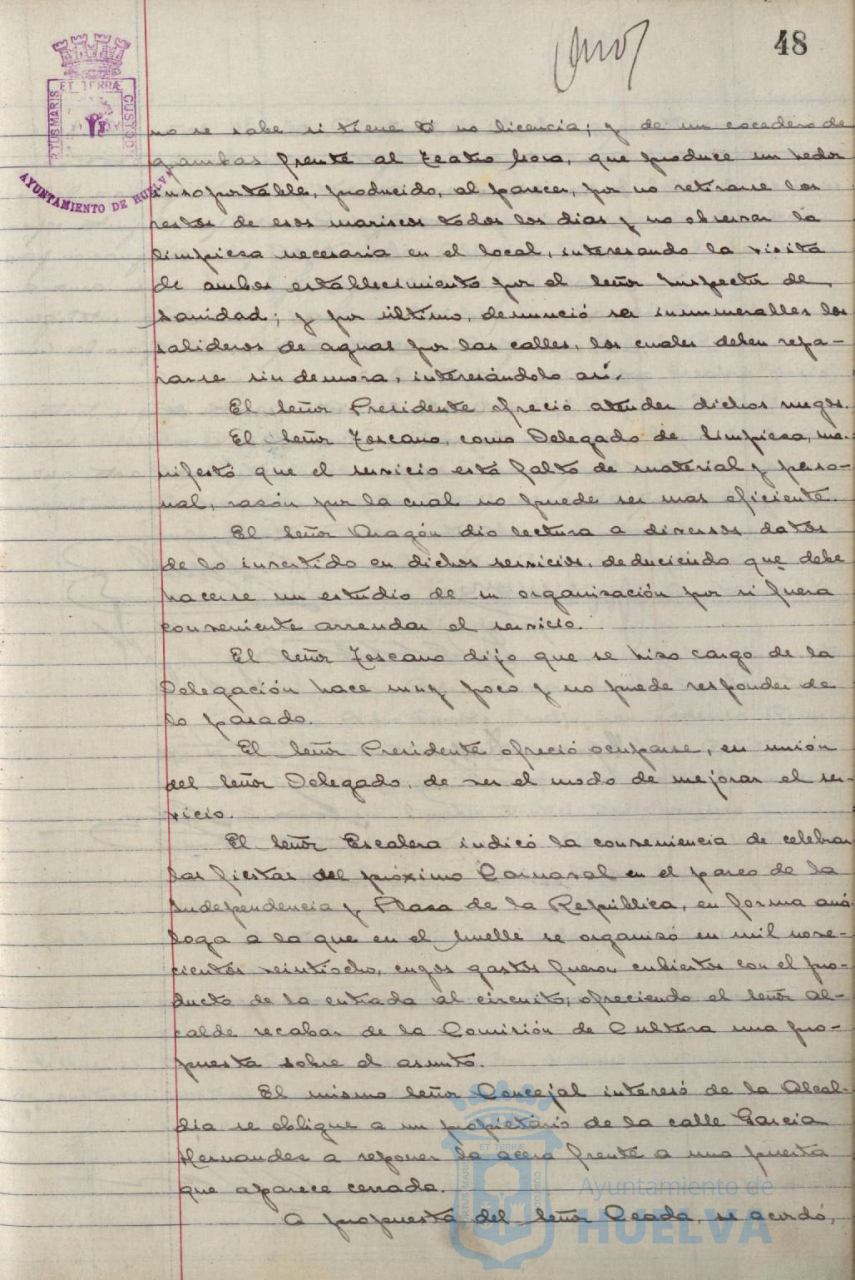 48
ET TERRÆ
AYUNTAMIENTO DE HUELVA
no se sabe si tiene ó no licencia; y de un cocedero de
gambas frente al Teatro Mora, que produce un hedor
insoportable, producido, al parecer, por no retirarse los
restos de esos mariscos todos los dias y no observar la
limpieza necesaria en el local, interesando la visita
de ambos establecimiento por el Señor Inspector de
Sanidad; y por último, denunció ser innumerables los
salideros de aguas por las calles, los cuales deben repa-
rarse sin demora, interesándolo así.
El Señor Presidente ofreció atender dichos ruegos.
El Señor Toscano, como Delegado de Limpieza, ma-
nifestó que el servicio está falto de material y perso-
nal, razón por la cual no puede ser mas eficiente.
El Señor Aragón dio lectura a diversos datos
de lo invertido en dichos servicios, deduciendo que debe
hacerse un estudio de su organización por si fuera
conveniente arrendar el servicio.
El Señor Toscano dijo que se hizo cargo de la
Delegación hace muy poco y no puede responder de
lo pasado.
El Señor Presidente ofreció ocuparse, en unión
del Señor Delegado, de ver el modo de mejorar el ser-
vicio.
El Señor Escalera indicó la conveniencia de celebrar
las fiestas del próximo Carnaval en el paseo de la
Independencia y Plaza de la República, en forma aná
loga a la que en el Muelle se organizó en mil nove-
cientos veintiocho, cuyos gastos fueron cubiertos con el pro-
ducto de la entrada al circuito; ofreciendo el Señor Al-
calde recabar de la Comisión de Cultura una pro-
puesta sobre el asunto.
El mismo Señor Concejal interesó de la Alcal-
dia se obligue a un propietario de la calle Garcia
Hernandez a reponer la acera frente a una puerta
que aparece cerrada.
A propuesta del Señor Ceada, se acordó,
Ayuntamiento de
HUELVA